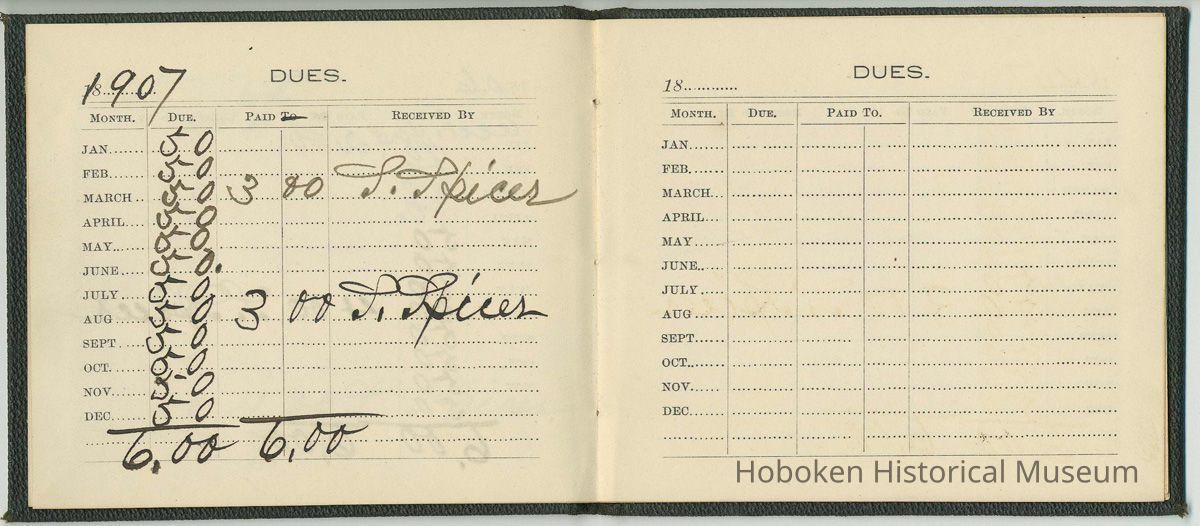 DUES.
1907
MONTH. DUE. PAID TO RECEIVED BY
JAN 50
FEB. 50
MARCH 50 3 00 S. Spicer
APRIL 50
MAY. 50
JUNE 50.
JULY 50
AUG 50 3 00 S. Spicer
SEPT 50
OCT. 50
NOV 50
DEC 50
6,00 6,00
DUES.
18
MONTH. DUE. PAID TO. RECEIVED BY
JAN.
FEB.
MARCH
APRIL
MAY
JUNE
JULY
AUG
SEPT
OCT.
NOV
DEC
Hoboken Historical Museum